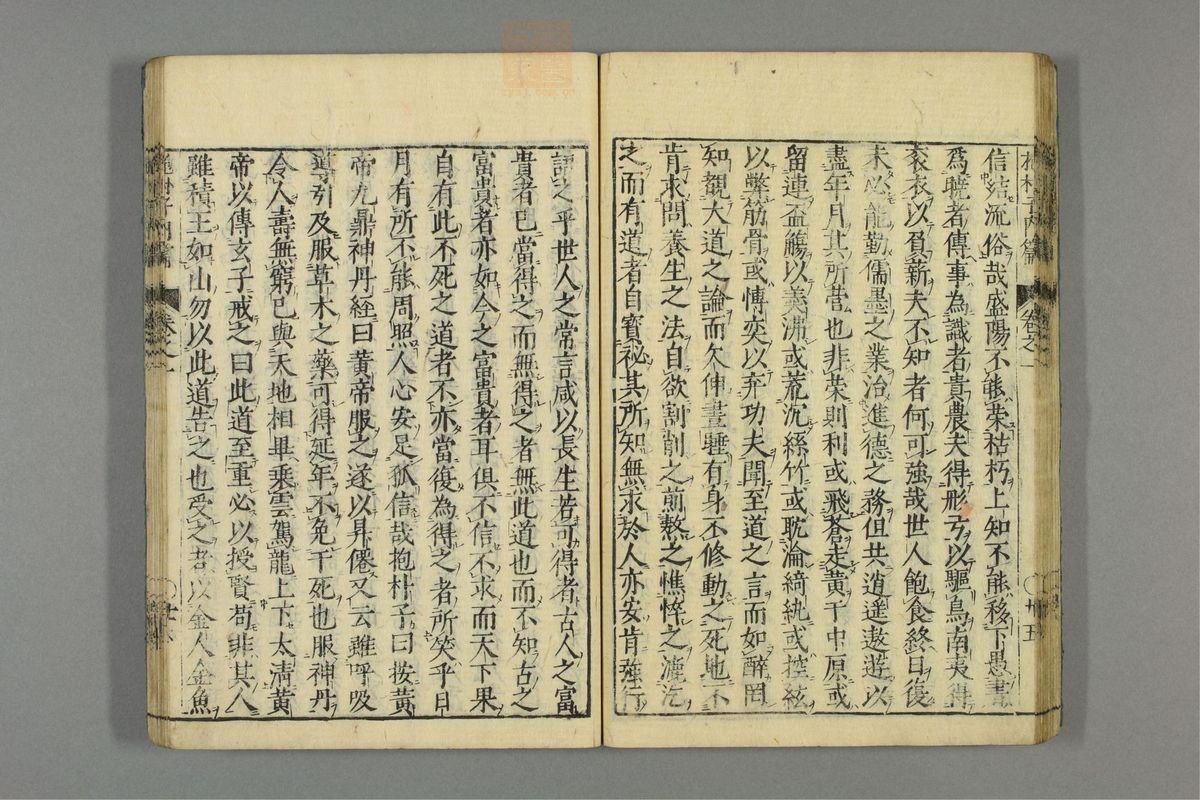 抱朴子内篇 卷之一 廿五
信結流俗哉盛陽不能荣枯朽上知不能移下愚書
爲曉者傳事為識者貴農夫得彤弓以驅鳥南夷得
衮衣以負薪夫不知者何可強哉世人飽食終日復
未必能勤儒墨之業治進德之務但共逍遥遨遊以
盡年月其所營也非荣則利或飛蒼走黄于中原或
留連盃觴以羙沸或荒沉絲竹或耽淪綺紈或控絃
以弊筋骨或博奕以弃功夫聞至道之言而如醉罔
知觀大道之論而欠伸晝睡有身不修動之死地不
肯求問養生之法自欲割削之煎熬之憔悴之漉汔
之而有道者自寳祕其所知無求於人亦安肯強行
語之乎世人之常言咸以長生若可得者古人之富
貴者已當得之而無得之者無此道也而不知古之
富貴者亦如今之富貴者耳俱不信不求而天下果
自有此不死之道者不亦當復為得之者所笑乎日
月有所不能周照人心安足孤信哉抱朴子曰按黄
帝九鼎神丹經曰黄帝服之遂以昇僊又云雖呼吸
導引及服草木之藥可得延年不免于死也服神丹
令人壽無窮已與天地相畢乘雲駕龍上下太清黄
帝以傳玄子戒之曰此道至重必以授賢苟非其人
雖積玉如山勿以此道告之也受之者以金人金魚
抱朴子内篇 卷之一